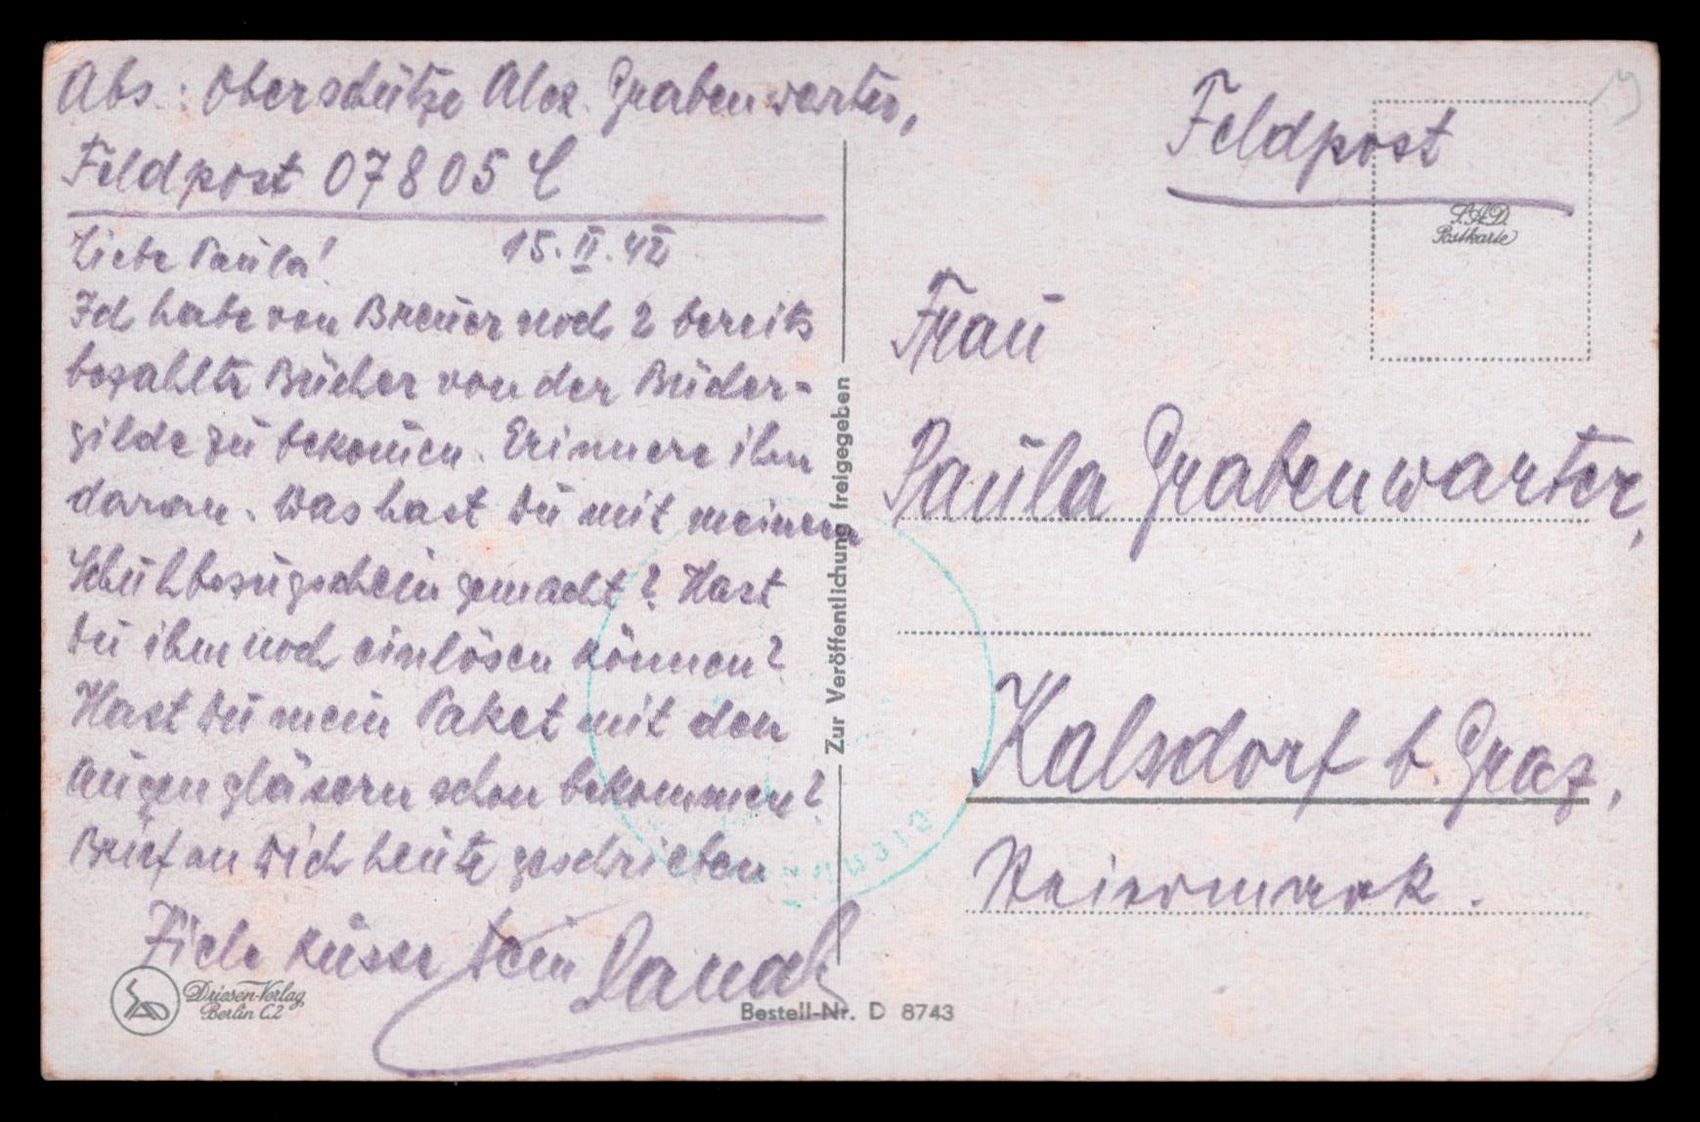 Abs.: Oberschütze Alex. Grabenwarter,
Feldpost 07805 C
Liebe Paula! 15.II.42
Ich habe von Breuer noch 2 bereits
bezahlte Bücher von der Bücher-
gilde zu bekomen. Erinnere ihn
daran. Was hast Du mit meinem
Schuhbezugschein gemacht? Hast
Du ihn noch einlösen können?
Hast Du mein Paket mit den
Augengläsern schon bekommen?
Brief an Dich heute geschrieben
Viele Küsse Dein
Driesen-Verlag
Berlin C.2
Bestell-Nr. D 8743
Zur Veröffentlichung freigegeben
Feldpost
Postkarte
Frau
Paula Grabenwarter,
Kalsdorf b. Graz,
Steiermark.